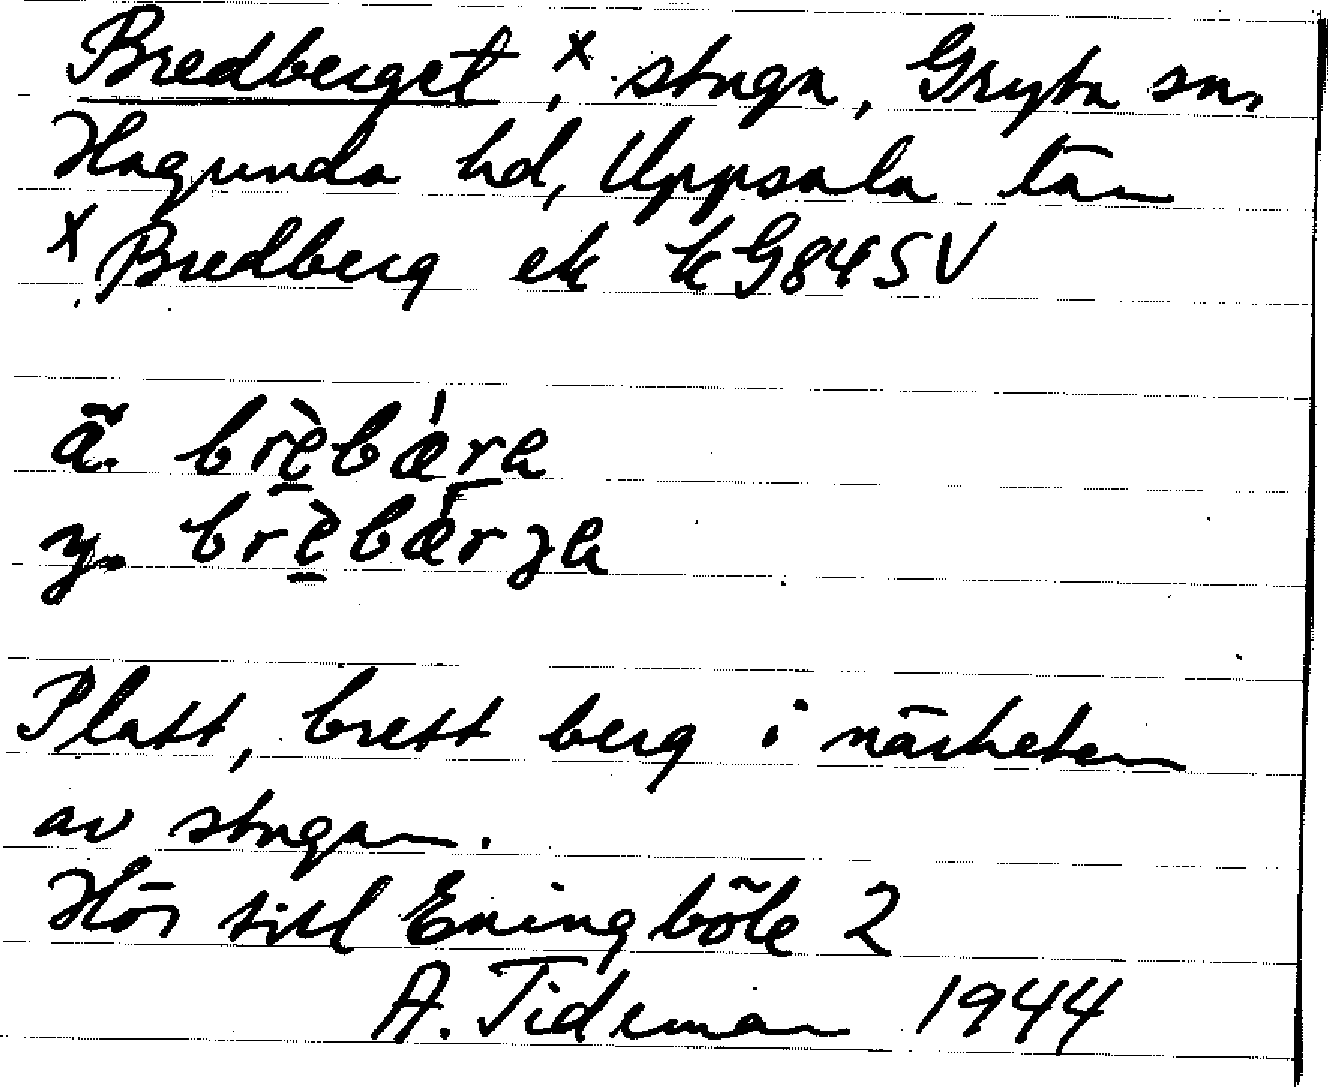 Bredberget,ˣ stuga, Gryta sn,
Hagunda hd, Uppsala län
ˣ Bredberg ek kG84SV
ä. brèbǽra
y. brèbǽrʒa
Platt, brett berg i närheten
av stugan.
Hör till Eningböle 2
A. Tideman 1944